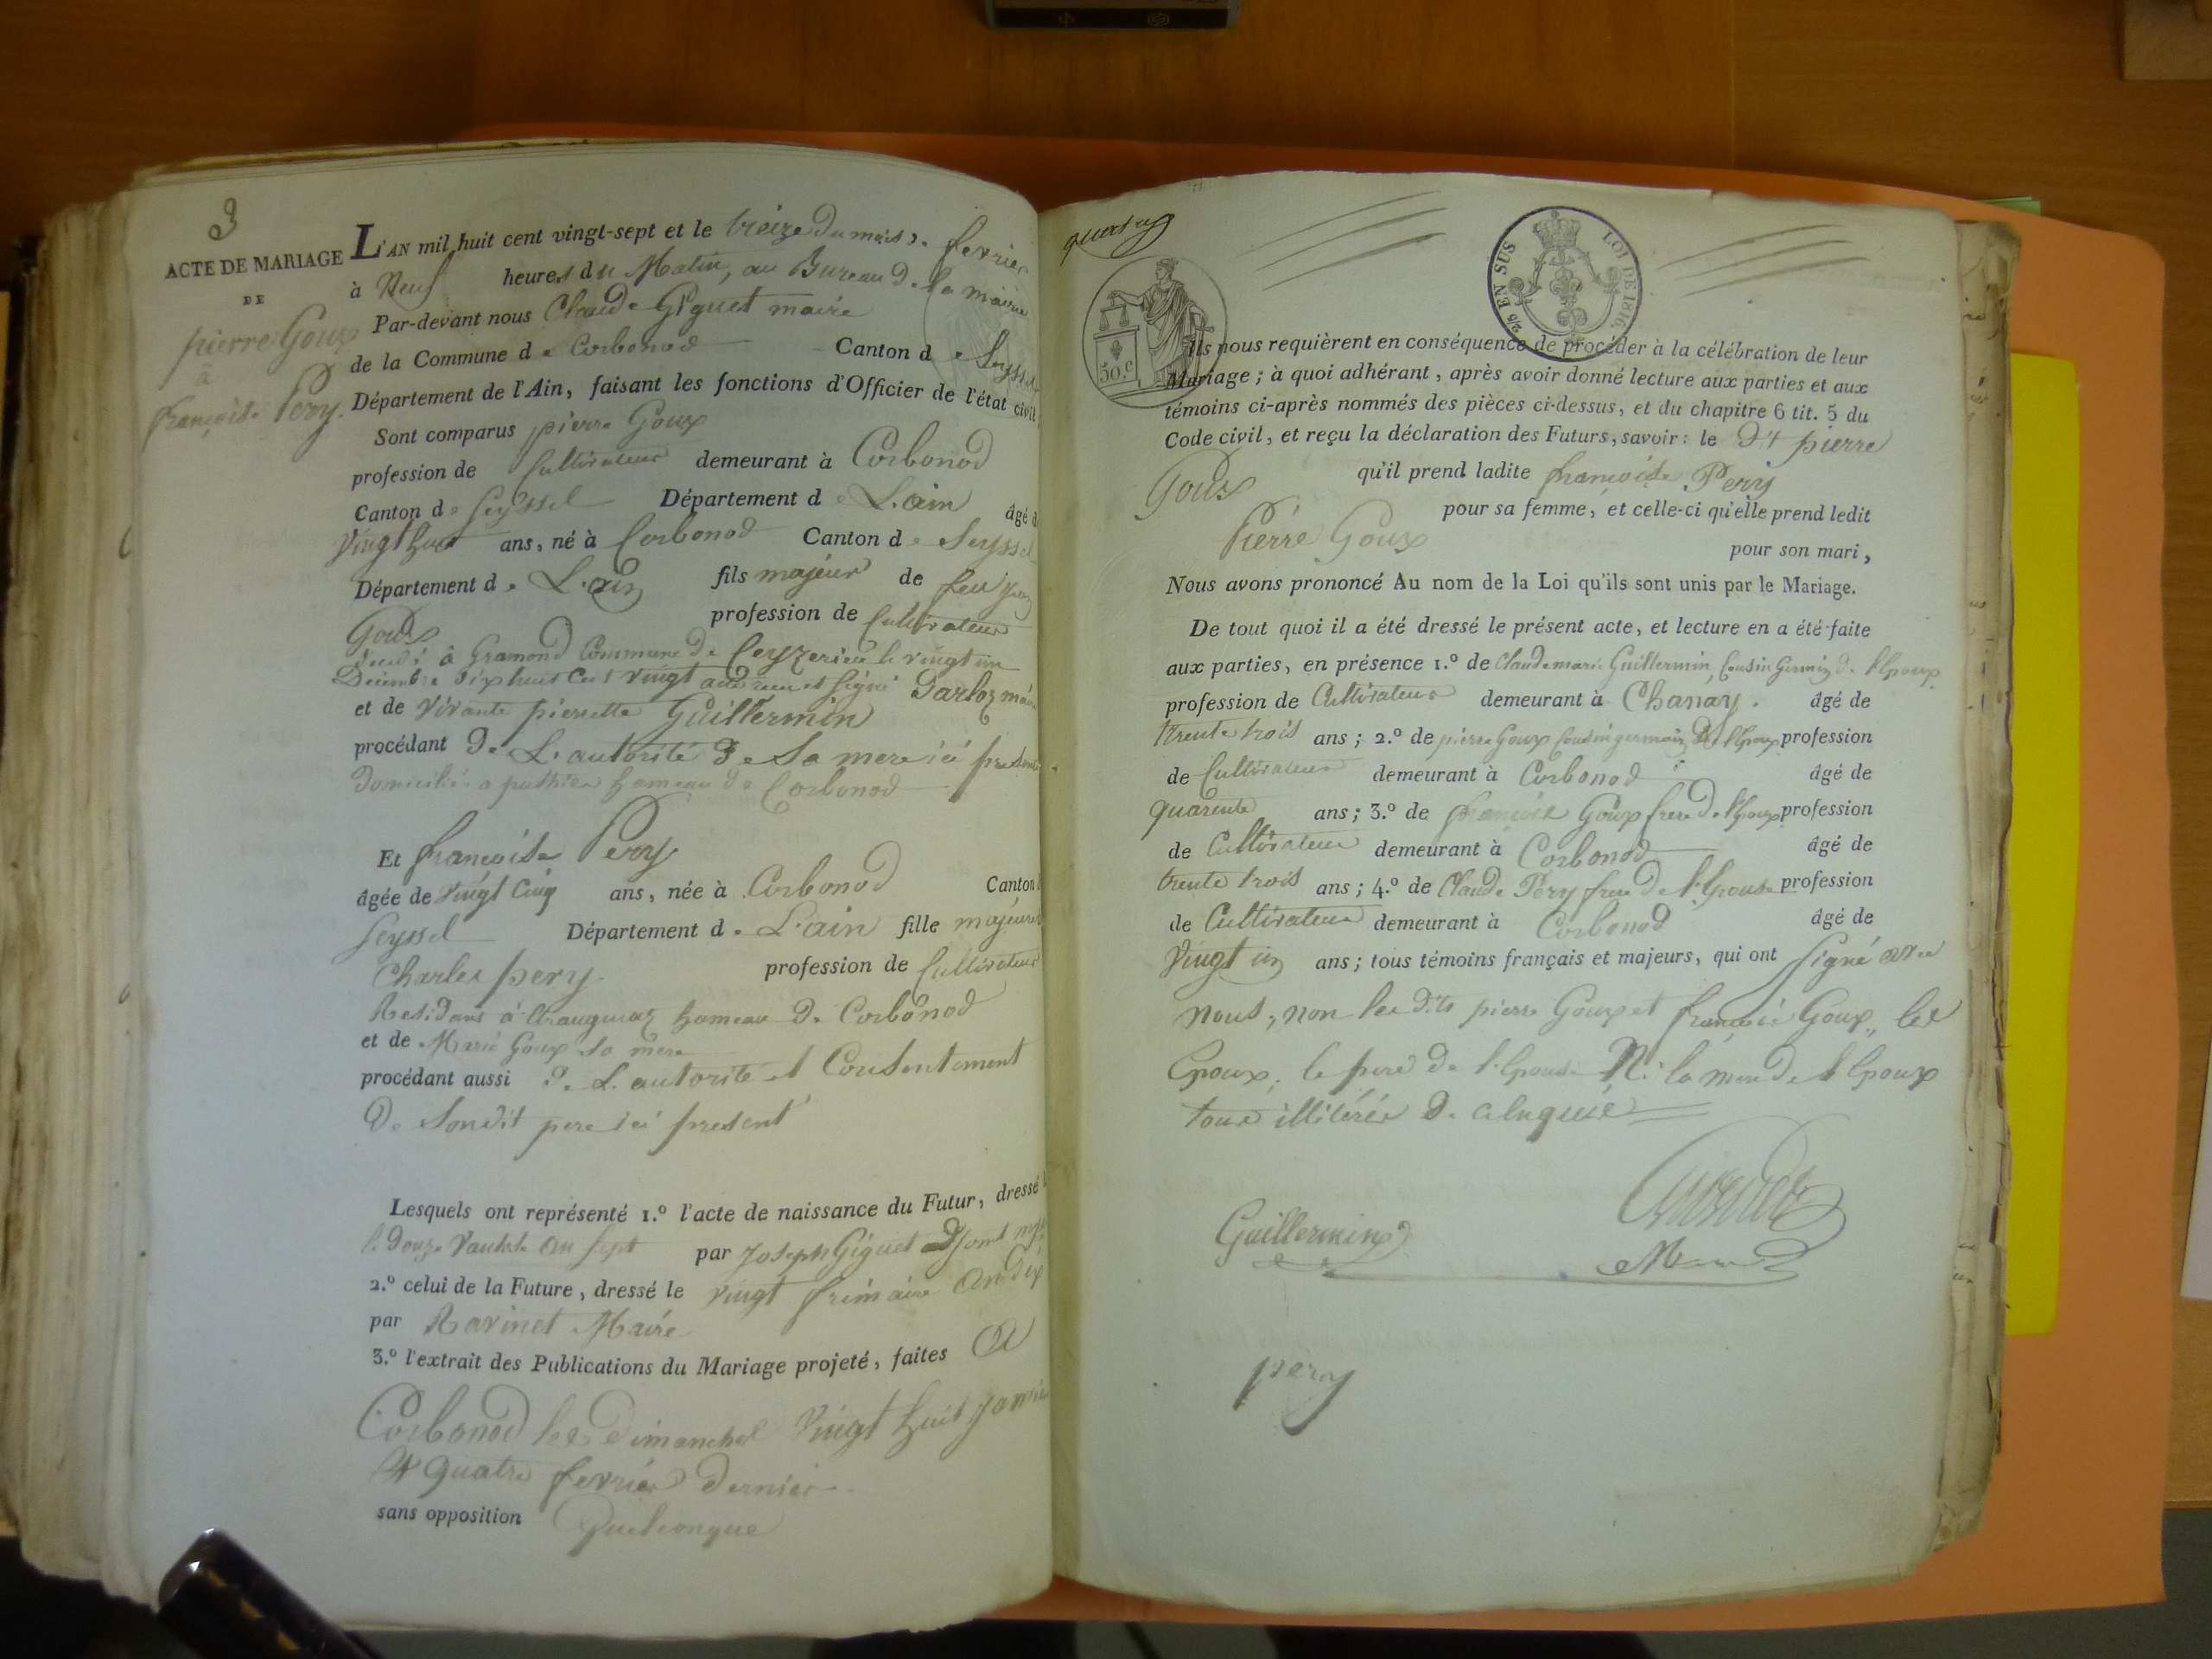 3
ACTE DE MARIAGE
DE
pierre Goux
à
françoise Pery.
L'AN mil huit cent vingt-sept et le treize du mois de fevrier
à Neuf heures du Matin, au Bureau de la mairie
Par-devant nous Claude Giguet maire
de la Commune de Corbonod Canton de Seyssel
Département de l'Ain, faisant les fonctions d'Officier de l'état civil,
Sont comparus pierre Goux
profession de Cultivateur demeurant à Corbonod
Canton de Seyssel Département de L'ain âgé d
Vingt huit ans, né à Corbonod Canton de Seyssel
Département de L'ain fils majeur de feu
Goux profession de Cultivateur
décédé à Gramond Commune de Ceyzerieu le vingt un
Décembre dix huit cent vingt signé Darloz maire
et de vivante pierrette Guillermin
procédant de L'autorité de Sa mere ici présente
Domiciliée a puthier hameau de Corbonod
Et françoise Pery
âgée de Vingt Cinq ans, née à Corbonod Canton d
Seyssel Département de L'ain fille majeure
Charles pery profession de Cultivateur
Residans à hameau de Corbonod
et de Marie Goux sa mere
procédant aussi de L'autorité et Consentement
De Sondit pere ici présent
Lesquels ont représenté 1.º l'acte de naissance du Futur, dressé
le Douze an sept par Joseph Giguet adjoint
2.º celui de la Future, dressé le vingt frimaire an dix
par Ravinet Maire
3.º l'extrait des Publications du Mariage projeté, faites a
Corbonod les dimanches vingt huit janvier
et quatre fevrier dernier
sans opposition quelconque
2/5 EN SUS LOI DE 1816
50.c
Ils nous requièrent en conséquence de procéder à la célébration de leur
Mariage; à quoi adhérant, après avoir donné lecture aux parties et aux
témoins ci-après nommés des pièces ci-dessus, et du chapitre 6 tit. 5 du
Code civil, et reçu la déclaration des Futurs, savoir: le dt pierre
Goux qu'il prend ladite françoise Pery
pour sa femme, et celle-ci qu'elle prend ledit
Pierre Goux pour son mari,
Nous avons prononcé Au nom de la Loi qu'ils sont unis par le Mariage.
De tout quoi il a été dressé le présent acte, et lecture en a été faite
aux parties, en présence 1.º de Claude marie Guillermin, Cousin Germain de l'Epoux
profession de Cultivateur demeurant à Chanay. âgé de
trente trois ans; 2.º de pierre Goux cousin germain de l'Epoux profession
de Cultivateur demeurant à Corbonod âgé de
quarente ans; 3.º de françois Goux frere de l'Epoux profession
de Cultivateur demeurant à Corbonod âgé de
trente trois ans; 4.º de Claude Pery frere de l'Epouse profession
de Cultivateur demeurant à Corbonod âgé de
Vingt un ans; tous témoins français et majeurs, qui ont signé avec
nous, non les dits pierre Goux et françois Goux, les
Epoux, le pere de l'Epouse Ni la mere de l'Epoux
tous illitérés de ce enquis
Guillermin
pery